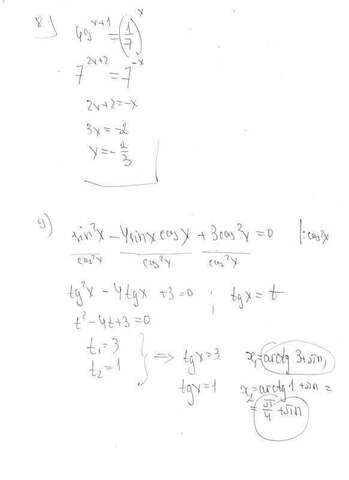 8)
49^{x+1} = (1/7)^x
7^{2x+2} = 7^{-x}
2x+2=-x
3x=-2
x=-2/3
9)
sin²x/cos²x - 4sinx cosx/cos²x + 3cos²x/cos²x = 0 |:cos²x
tg²x - 4tgx + 3 = 0 ; tgx = t
t² - 4t + 3 = 0
t₁=3
t₂=1
} => tgx=3 x₁=arctg3+πn,
tgx=1 x₂=arctg1+πn =
= π/4 + πn